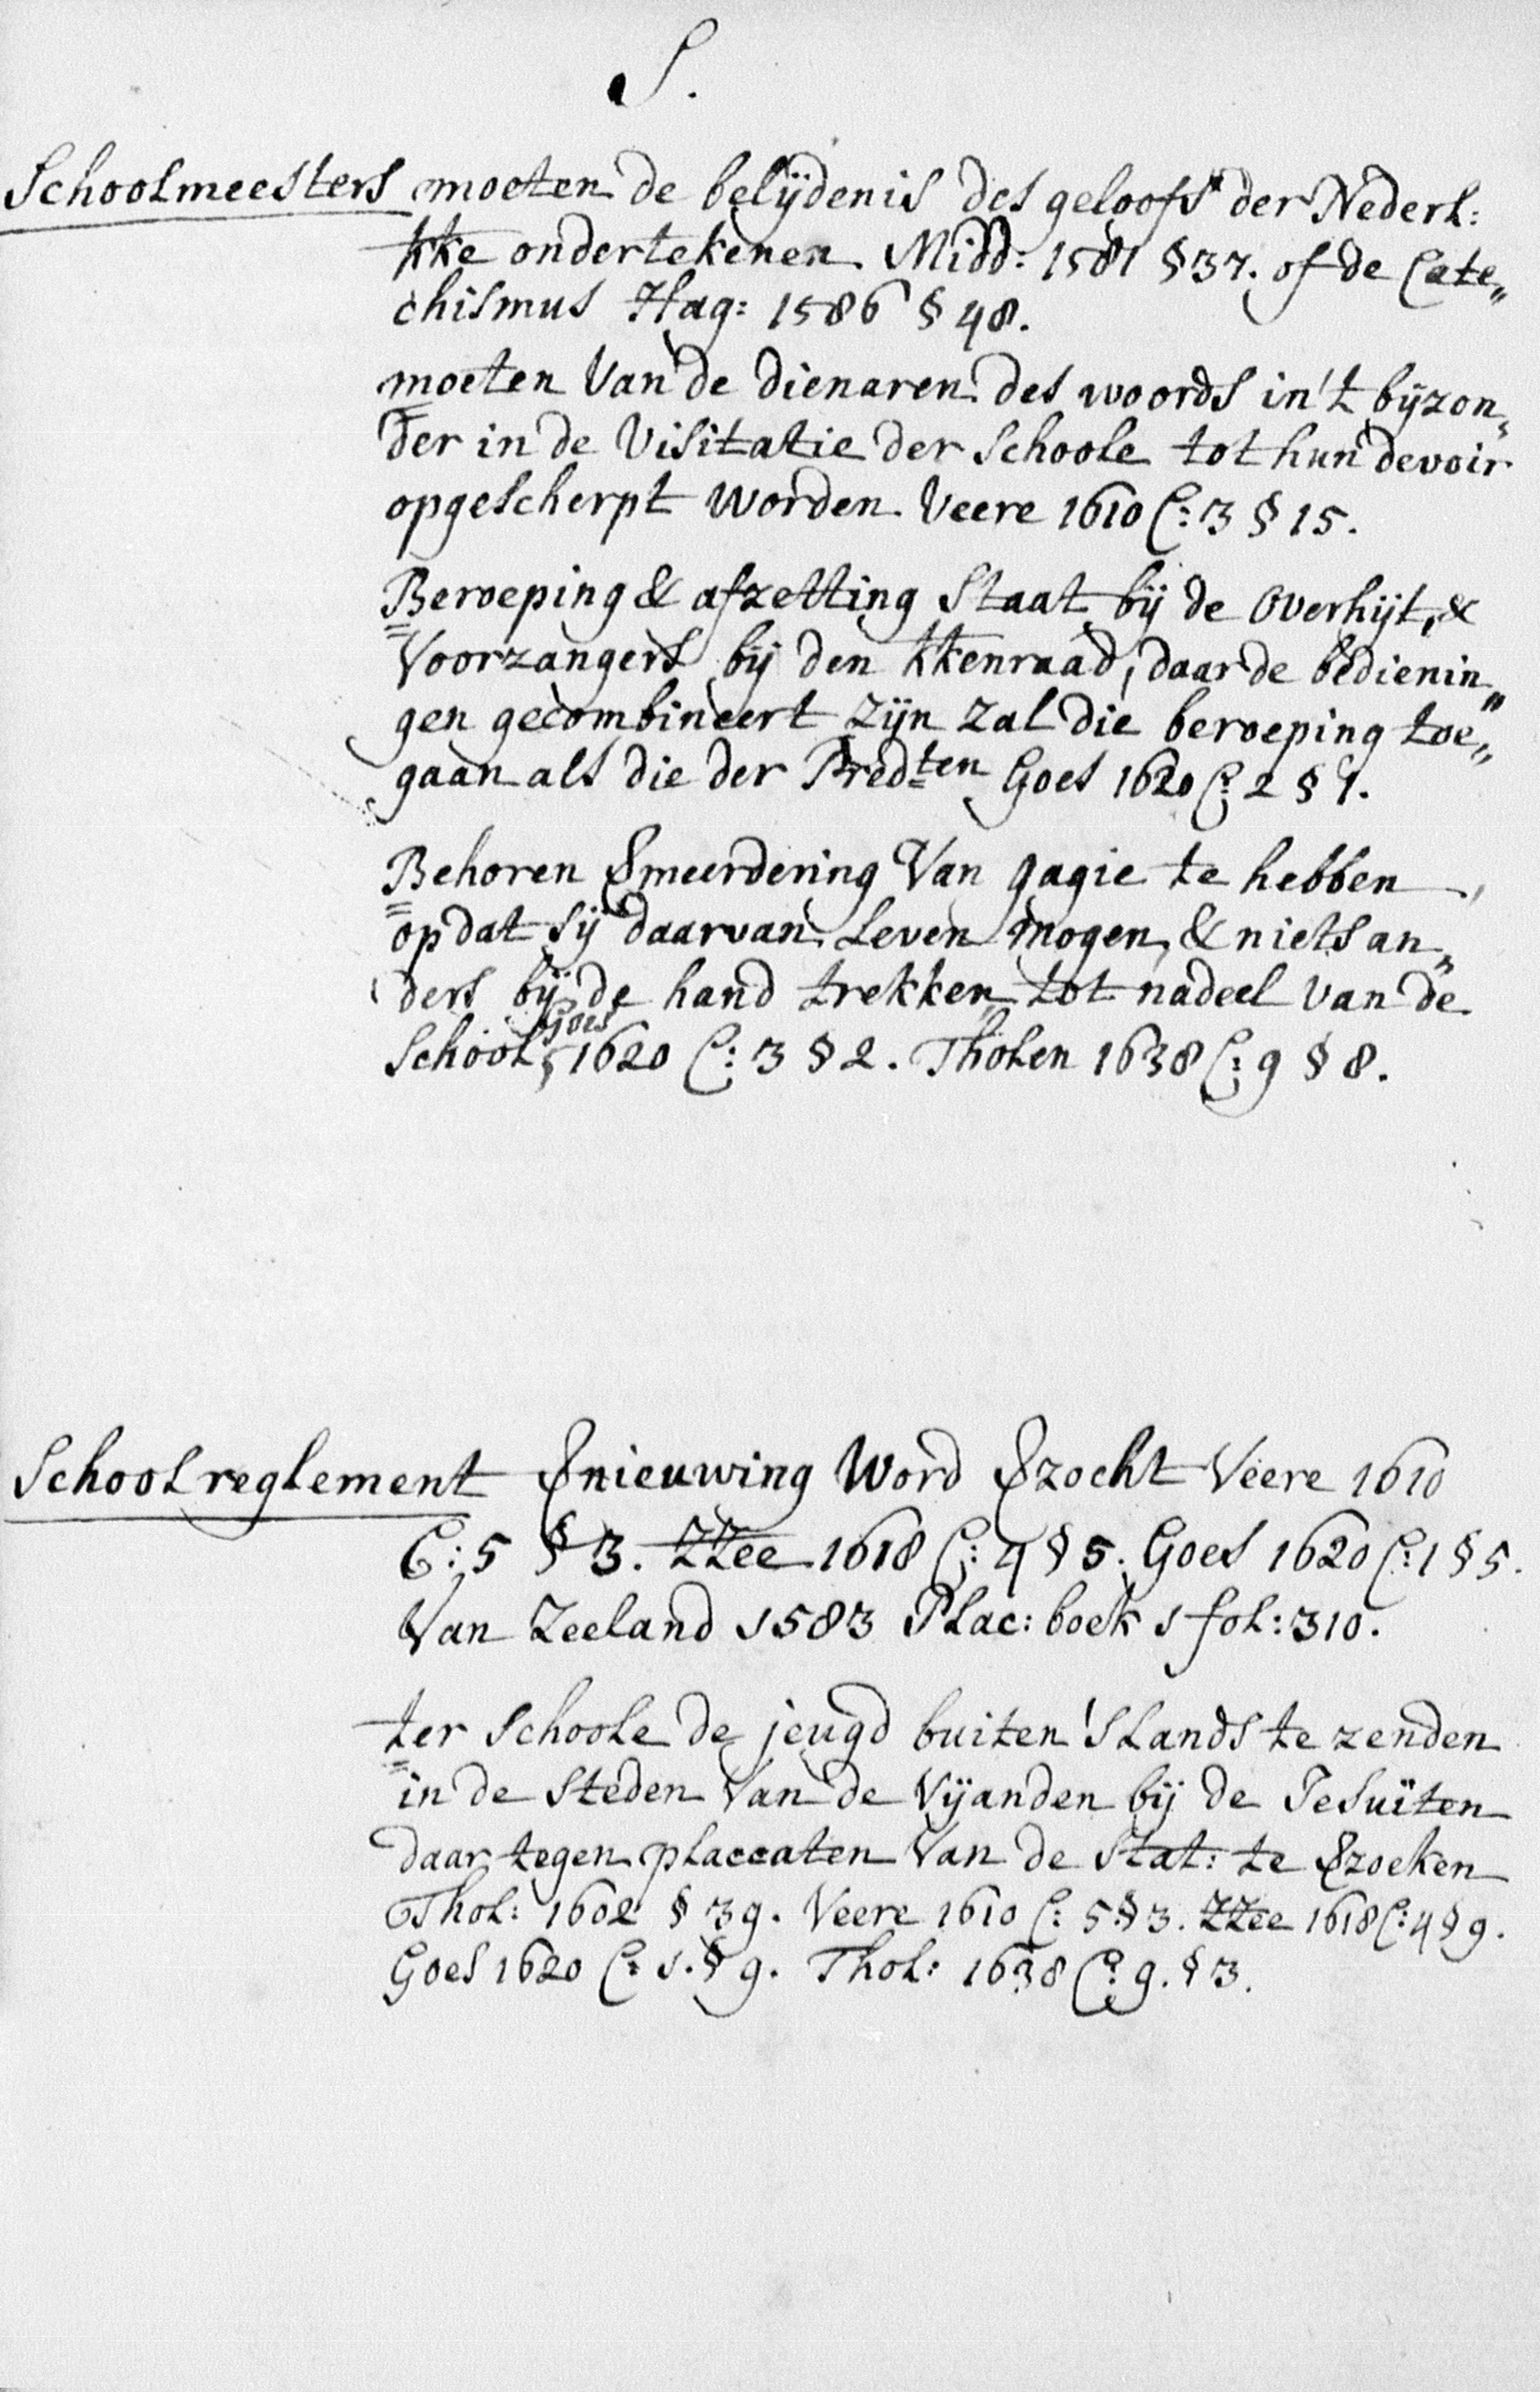 S.
Schoolmeesters moeten de belijdenis des geloofs der Nederl:
kke ondertekenen. Midd: 1581 § 37. of de Cate„
chismus Hag: 1586 § 48.
moeten Van de dienaren des woords in't bijzon„
der in de Visitatie der Schoole tot hun devoir
opgescherpt worden. Veere 1610 C: 3 § 15.
Beroeping & afzetting Staat bij de Overhijt, &
Voorzangers bij den kkenraad, daar de bedienin„
gen gecombineert zijn zal die beroeping toe„
gaan als die der Predten Goes 1620 C: 2 § 1.
Behoren Vmeerdering Van gagie te hebben,
op dat sij daarvan Leven mogen, & niets an„
ders bij de hand trekken tot nadeel van de
School, Goes 1620 C: 3 § 2. Tholen 1638 C: 9 § 8.
Schoolreglement Vnieuwing Word Vzocht Veere 1610
C: 5 § 3. ZZee 1618 C: 4 § 5. Goes 1620 C: 1 § 5.
Van Zeeland 1583 Plac: boek 1 fol: 310.
ter Schoole de jeugd buiten 'sLands te zenden
in de Steden Van de Vijanden bij de Jesuïten
daar tegen placcaten Van de Stat: te Vzoeken
Thol: 1602 § 39. Veere 1610 C: 5 § 3. ZZee 1618 C: 4 § 9.
Goes 1620 C: 1. § 9. Thol: 1638 C: 9. § 3.